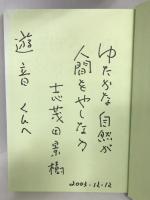 ゆたかな 自然が
人間をやしなう
志茂田景樹
遊音 くんへ
2003.12.12